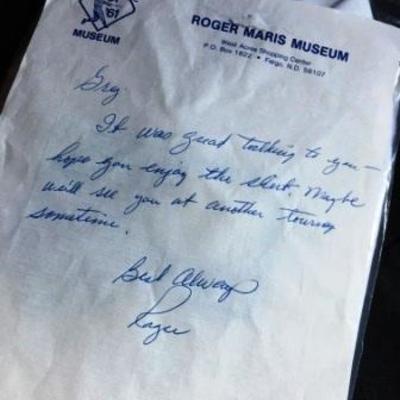 '61
MUSEUM
ROGER MARIS MUSEUM
West Acres Shopping Center
P.O. Box 1822 • Fargo, N.D. 58107
Greg.
It was great talking to you —
hope you enjoy the shirt. Maybe
will see you at another tourney
sometime.
Best Always
Roger